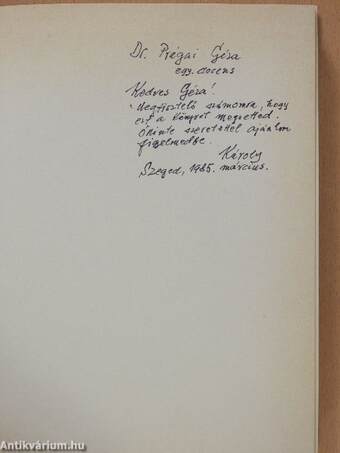 Dr. Prágai Géza
egy. docens
Kedves Géza!
Megtisztelő számomra, hogy
ezt a könyvet megvetted.
Őszinte szeretettel ajánlom
figyelmedbe.
Károly
Szeged, 1985. március.
Antikvárium.hu